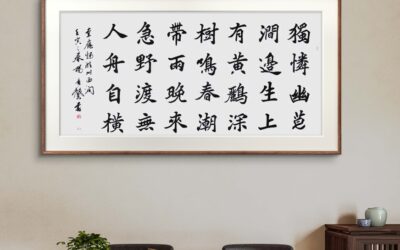 獨憐幽草
澗邊生上
有黃鸝深
樹鳴春潮
帶雨晚來
急野渡無
人舟自橫
韋應物滁州西澗
壬寅春
書